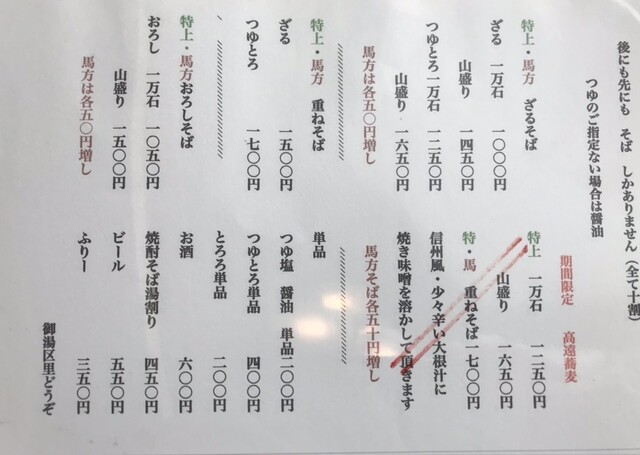 後にも先にも そば しかありません（全て十割）
つゆのご指定ない場合は醤油
特上・馬方 ざるそば
ざる 一万石 一〇〇〇円
山盛り 一四五〇円
つゆとろ一万石 一二五〇円
山盛り 一六五〇円
馬方は各五〇円増し
特上・馬方 重ねそば
ざる 一五〇〇円
つゆとろ 一七〇〇円
特上・馬方おろしそば
おろし 一万石 一〇五〇円
山盛り 一五〇〇円
馬方は各五〇円増し
期間限定 高遠蕎麦
特上 一万石 一二五〇円
山盛り 一六五〇円
特・馬 重ねそば一七〇〇円
信州風・少々辛い大根汁に
焼き味噌を溶かして頂きます
馬方そば各五十円増し
単品
つゆ塩 醤油 単品二〇〇円
つゆとろ単品 四〇〇円
とろろ単品 二〇〇円
お酒 六〇〇円
焼酎そば湯割り 四五〇円
ビール 五五〇円
ふりー 三五〇円
御湯区里どうぞ